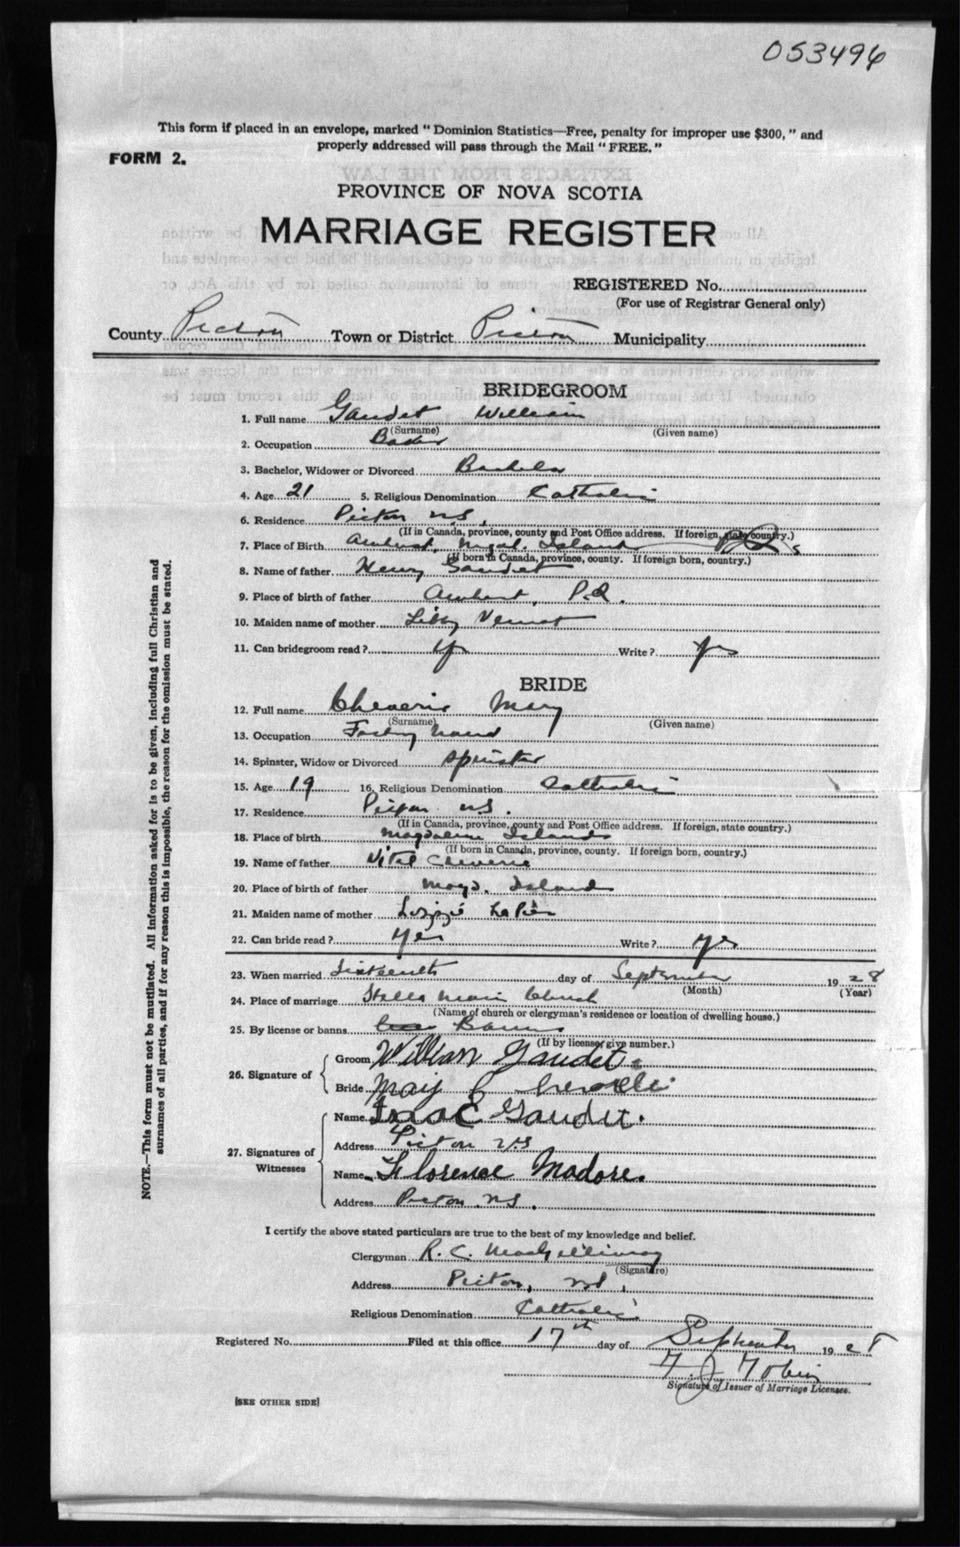 053496
This form if placed in an envelope, marked " Dominion Statistics—Free, penalty for improper use $300, " and
properly addressed will pass through the Mail "FREE."
FORM 2.
PROVINCE OF NOVA SCOTIA
MARRIAGE REGISTER
REGISTERED No.
(For use of Registrar General only)
County Pictou Town or District Pictou Municipality
BRIDEGROOM
1. Full name Gaudet William
(Surname) (Given name)
2. Occupation
3. Bachelor, Widower or Divorced Bachelor
4. Age 21 5. Religious Denomination Catholic
6. Residence Pictou N.S.
(If in Canada, province, county and Post Office address. If foreign, state country.)
7. Place of Birth Amherst, Magd. Island
(If born in Canada, province, county. If foreign born, country.)
8. Name of father Henry Gaudet
9. Place of birth of father Amherst, P.Q.
10. Maiden name of mother
11. Can bridegroom read? Yes Write? Yes
BRIDE
12. Full name Cheverie Mary
(Surname) (Given name)
13. Occupation Factory Hand
14. Spinster, Widow or Divorced Spinster
15. Age 19 16. Religious Denomination Catholic
17. Residence Pictou N.S.
(If in Canada, province, county and Post Office address. If foreign, state country.)
18. Place of birth Magdalene Islands
(If born in Canada, province, county. If foreign born, country.)
19. Name of father Vital Cheverie
20. Place of birth of father Magd. Island
21. Maiden name of mother Lizzie
22. Can bride read? Yes Write? Yes
23. When married Sixteenth day of September 1928
(Month) (Year)
24. Place of marriage Stella Maris Church
(Name of church or clergyman's residence or location of dwelling house.)
25. By license or banns Banns
(If by license give number.)
26. Signature of
Groom William Gaudet
Bride Mary
27. Signatures of Witnesses
Name Isaac Gaudet.
Address Pictou N.S
Name Florence Madore.
Address Pictou N.S.
I certify the above stated particulars are true to the best of my knowledge and belief.
Clergyman R. C. MacGillivray
(Signature)
Address Pictou, N.S.
Religious Denomination Catholic
Registered No. Filed at this office 17th day of September 1928
F. J. Tobin
Signature of Issuer of Marriage Licenses.
[SEE OTHER SIDE]
NOTE.—This form must not be mutilated. All information asked for is to be given, including full Christian and
surnames of all parties, and if for any reason this is impossible, the reason for the omission must be stated.